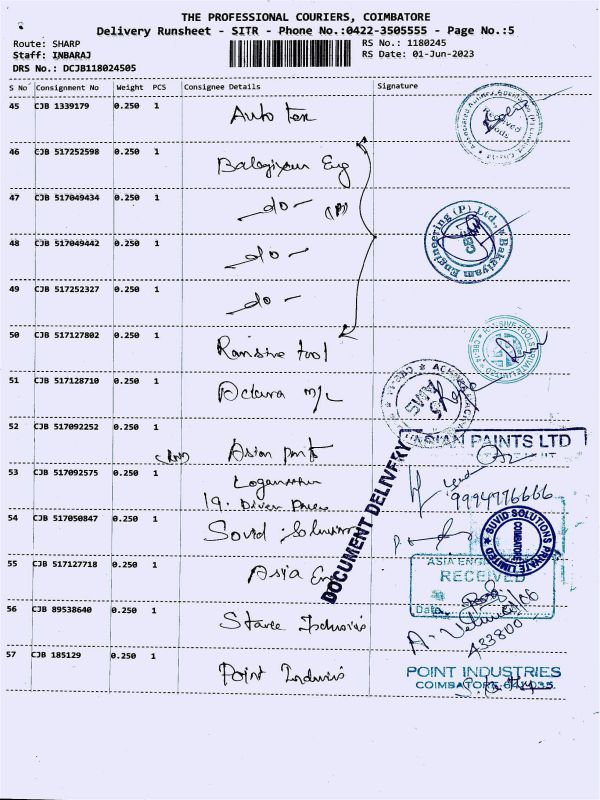 THE PROFESSIONAL COURIERS, COIMBATORE
Delivery Runsheet - SITR - Phone No.:0422-3505555 - Page No.:5
Route: SHARP
RS No.: 1180245
Staff: INBARAJ
RS Date: 01-Jun-2023
DRS No.: DCJB118024505
S No Consignment No Weight PCS Consignee Details Signature
45 CJB 1339179 0.250 1 Auto Tex
Received
46 CJB 517252598 0.250 1 Balagiyam Eng
47 CJB 517049434 0.250 1 -do-
48 CJB 517049442 0.250 1 -do-
Bakgiyam Engineering (P) Ltd.,
49 CJB 517252327 0.250 1 -do-
50 CJB 517127802 0.250 1 Ransive tool
51 CJB 517128710 0.250 1
52 CJB 517092252 0.250 1 Asian paints
ASIAN PAINTS LTD
53 CJB 517092575 0.250 1
19.
9994776666
54 CJB 517050847 0.250 1 Suvid Solutions
SUVID SOLUTIONS PRIVATE LIMITED
COIMBATORE
DOCUMENT DELIVERY
55 CJB 517127718 0.250 1 Asia Eng
ASIA ENG
RECEIVED
Date
56 CJB 89538640 0.250 1
433800
57 CJB 185129 0.250 1 Point Industries
POINT INDUSTRIES
COIMBATORE-641 035.